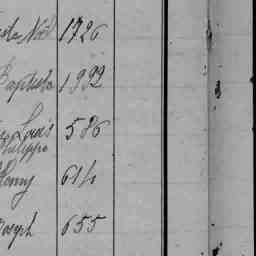 Noël 1726
Baptiste 1992
Louis 586
Philippe
Henry 614
Joseph 655